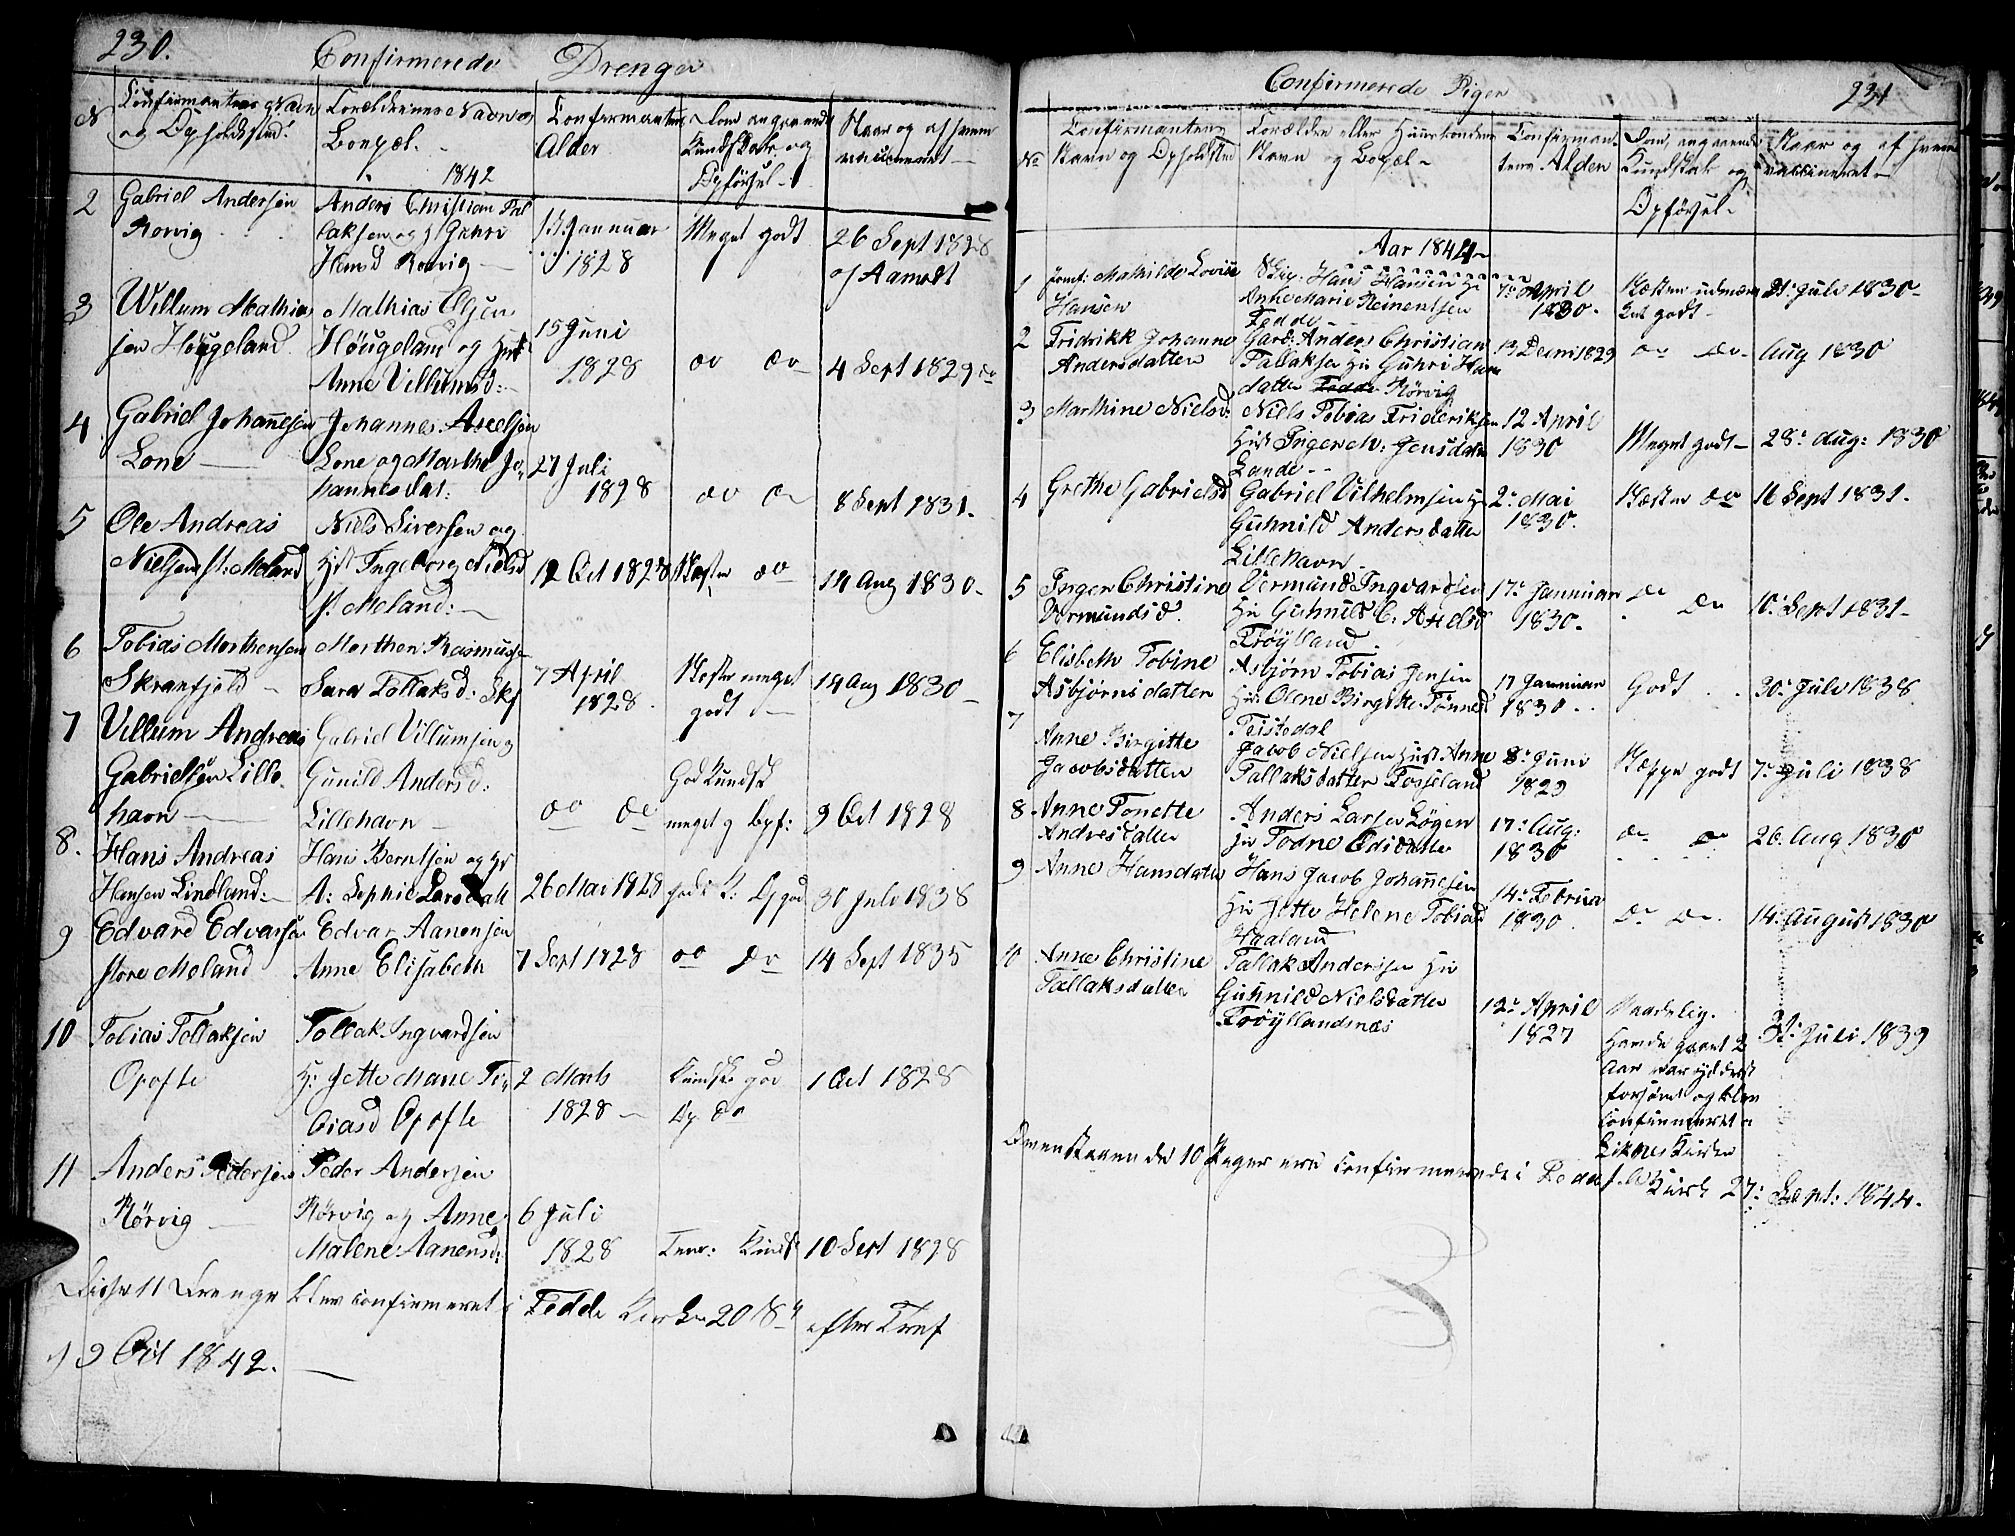 230.
Confirmerede Drenge
No
Confirmantens Navn
og Opholdsted.
Forældrenes Navn og
Bopæl.
Confirmantens
Alder
Dom angaaende
Kundskab og
Opførsel
Naar og af hvem
vaccineret
1842
2
Gabriel Andersen
Rørvig
Anders Christian Tal
laksen og H Guhri
Hansd Rørvig
13 Januar
1828
Meget godt
26 Sept 1828
af Aamodt
3
Willum Mathia
sen Høugeland
Mathias Olsen
Høugeland og Hust
Anne Villumsd:
15 Juni
1828
do do
4 Sept 1829 do
4
Gabriel Johannesen
Lone
Johannes Axelsen
Lone og Marthe Jo,
hannesdat:
27 Juli
1828
do do
8 Sept 1831.
5
Ole Andreas
Nielsen st: Meland
Niels Siversen og
Hst Ingeborg Nielsd
st. Meland:
12 Oct 1828
Næsten do
14 Aug 1830
6
Tobias Morthensen
Skranfjeld
Morthen Rasmusse
Sara Tollaksd: Skf
7 April
1828.
Næsten meget
godt
14 Aug 1830
7
Villum Andreas
Gabrielsen Lille
havn
Gabriel Villumsen og
Gunild Andersd:
Lillehavn
do do
God Kundsk
meget g Opf:
9 Oct 1828
8.
Hans Andreas
Hansen Lindland:
Hans Berntsen og Hs
A: Sophie Larsdatt
26 Mai 1828
godt K: Op god
30 Juli 1838
9
Edvard Edvarsen
store Meland
Edvar Aanensen
Anne Elisabeth
7 Sept 1828
do do
14 Sept 1835
10
Tobias Tollaksen
Opofte
Tollak Ingvardsen
H: Jette Marie To,,
biasd Opofte
2 Marts
1828
Kundsk: god
Op do
1 Oct 1828
11
Anders Pedersen
Rørvig
Peder Andersen
Rørvig og Anne
Malene Aanensd:
6 Juli
1828
Temr: Kundsk
10 Sept 1828
Disse 11 Drenge blev confirmeret i Fedde Kirke 20 S. efter Tref
d 9 Oct 1842.
Confirmerede Piger
231
No
Confirmantens
Navn og Opholdsted
Forældre eller Huusbondens
Navn og Bopæl
Confirman-
tens Alder
Dom, angaaende
Kundskab og
Opførsel
Naar og af hvem
vakkineret
Aar 1844
1
Jomf: Mathilde Lovise
Hansen
Skip. Hans Hansen Hu
Anhe Marie Reinertsen
Fedde
7: April
1830.
Næsten udmær
ket godt
21: Juli 1830
2
Fridrikk Johanne
Andersdatter
Gard: Anders Christian
Tallaksen Hu Guhri Hans
datter Fedde Rørvig
13 Decm 1829
do do
Aug 1830
3
Marthine Nielsd:
Niels Tobias Frideriksen
Hust Inger M: Jensdatter
Lande
12 April
1830
Meget godt
28: Aug: 1830
4
Grethe Gabrielsd
Gabriel Vilhelmsen Hu
Guhnild Andersdatter
Lillehavn
2: Mai
1830.
Næsten do
16 Sept 1831.
5
Inger Christine
Vermundsd.
Vermund Ingvardsen
Hu Guhnild C: Axelsd
Frøylland.
17: Jannuar
1830.
do do
10: Sept 1831
6
Elisbeth Tobine
Asbjørnsdatter
Asbjørn Tobias Jensen
Hu: Olene Birgitte Tønnesd
Teistedal
17 Jannuar
1830.
Godt
30: Juli 1838
7
Anne Birgitte
Jacobsdatter
Jacob Nielsen Hust Anne
Tallaksdatter Fosseland
8: Juni
1829
Næppe godt
7: Juli 1838
8
Anne Tonette
Andresdatter
Anders Larsen Løgen
Hu Todne Edisdatter
17: Aug:
1830
do do
26. Aug 1830
9
Anne Hansdatter
Hans Jacob Johannesen
Hu Jette Helene Tobiasd
Haaland
14: Februar
1830.
do do
14: August 1830
10
Anne Christine
Tallaksdatter
Tallak Andersen Hu
Guhnild Nielsdatter
Frøyllandsnæs
12: April
1827
Maadelig.
Havde gaaet 2
Aar var yderst
forsømt og blev
confirmeret i
Liknes Kirke
31: Juli 1839
Ovenstaaende 10 Piger ere confirmerede i Fedde Kirke 27: Sept: 1844.